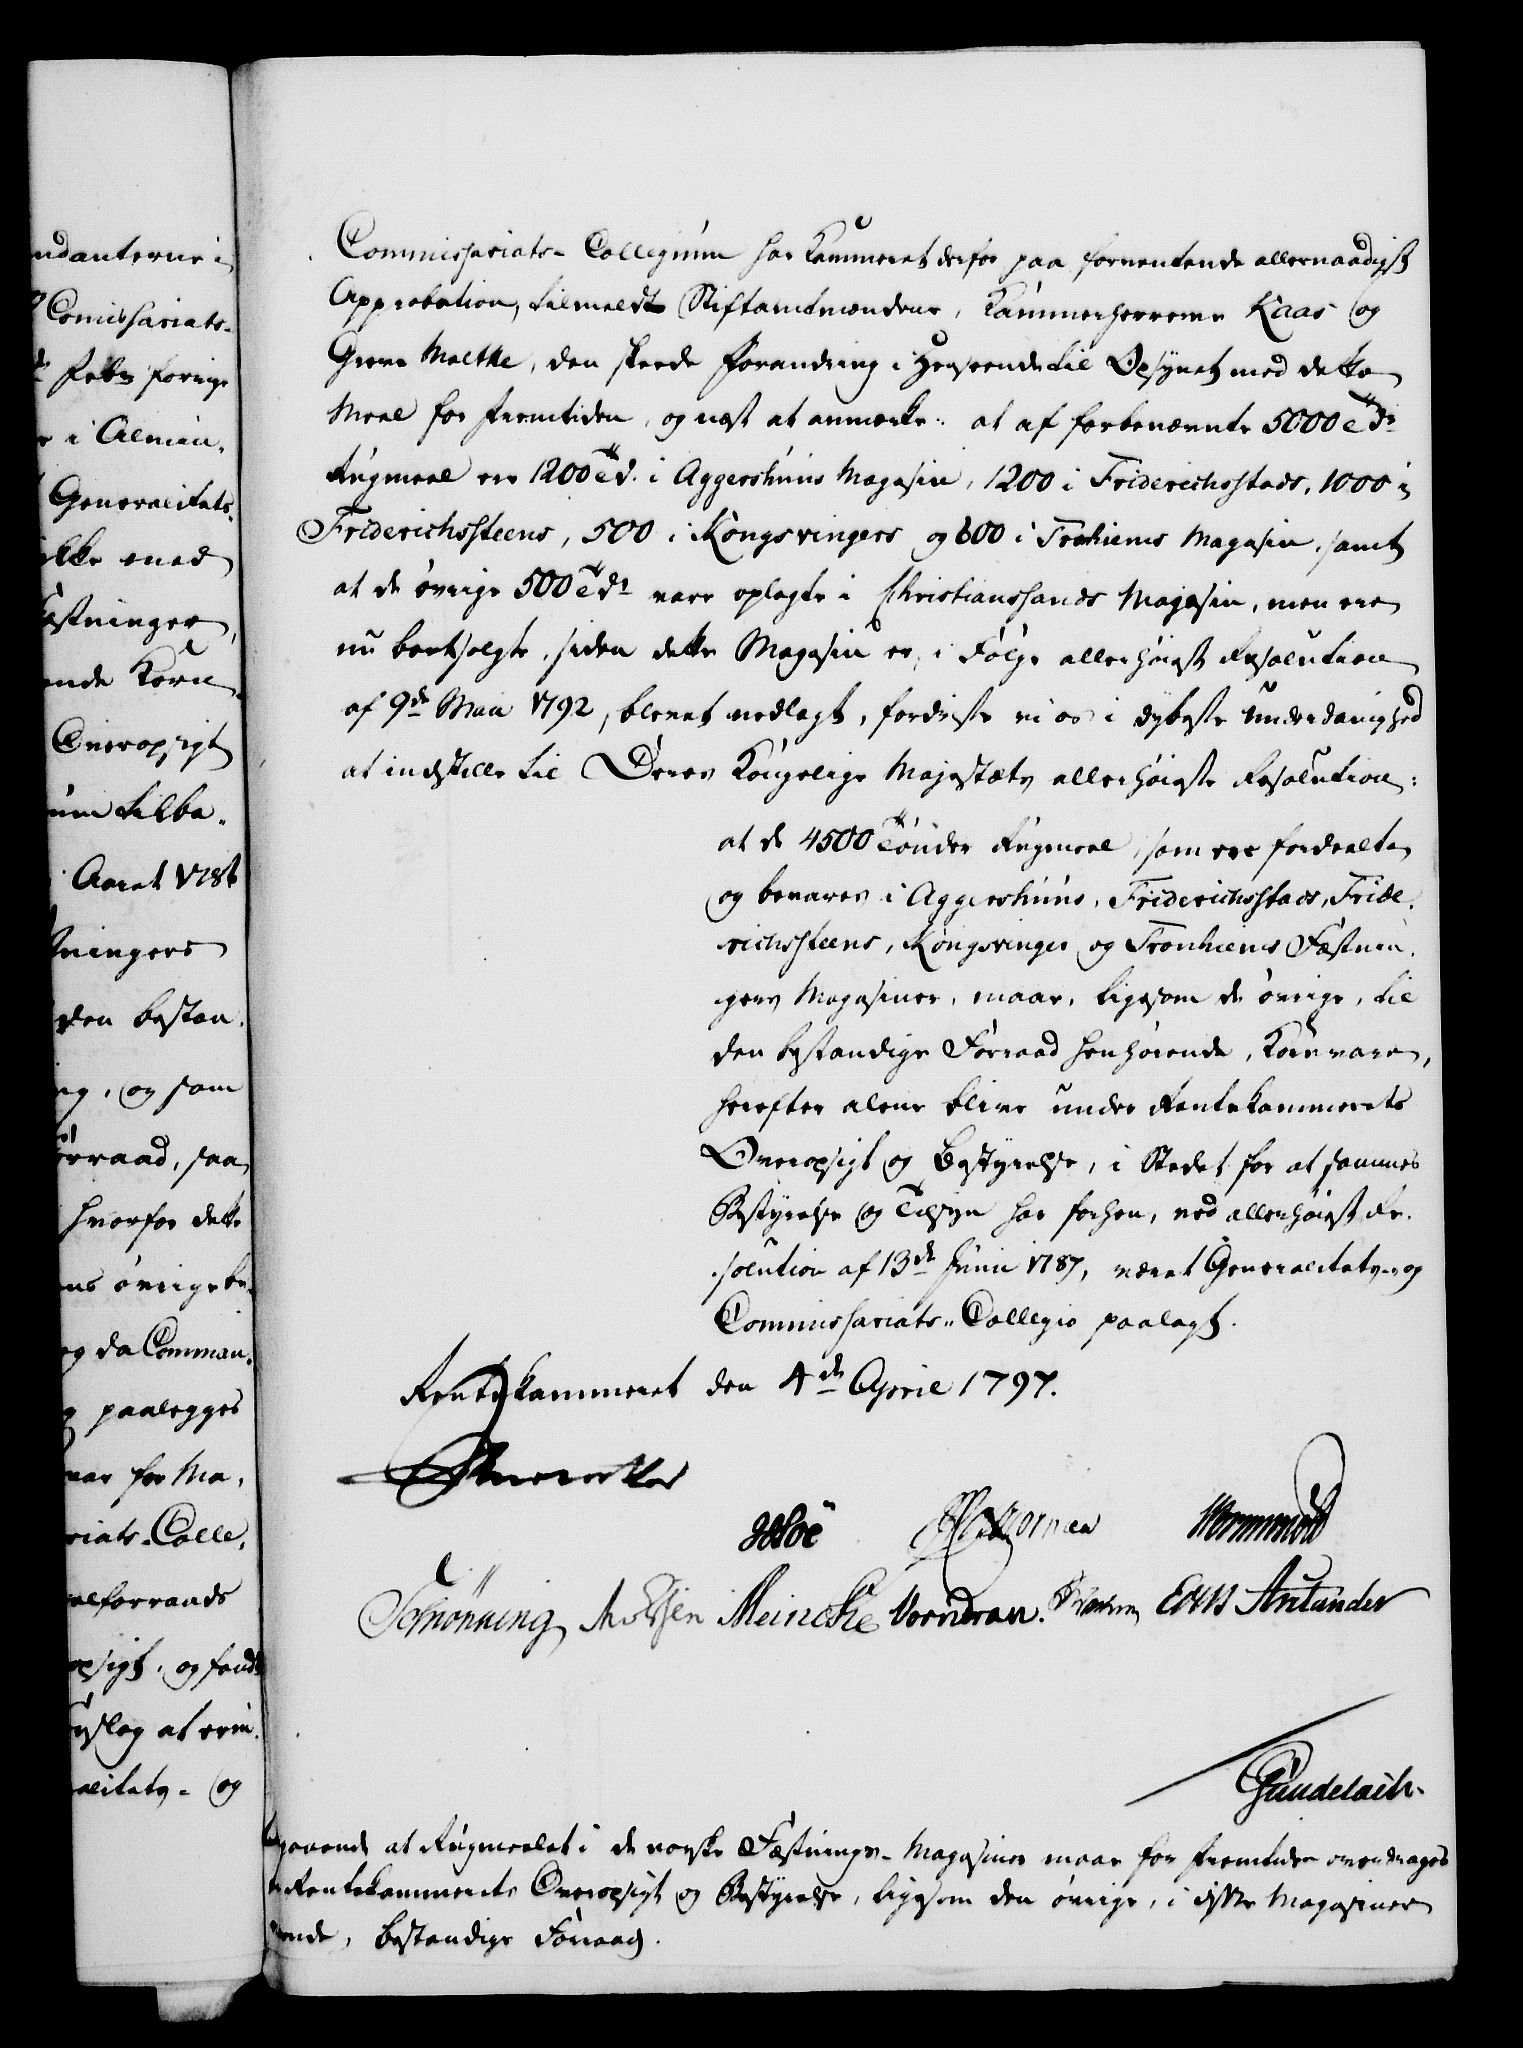 ndanterne i
Comissariats-
Febr forige
i Almin-
Generalitets-
ikke med
æstninger,
ende Korn
Overopsigt
um tilba-
Aaret 1786
tningers
den bestan-
og som
orraad, saa
hvorfor dette
ens övrige be-
og da Comman-
paalegges
var for Ma-
riats-Colle-
alforraads
opsigt, og fandt
rslag at erin-
alitets- og
Commissariats- Collegium har Kammeret derfor paa forventende allernaadigst
Approbation, tilmeldt Stiftamtmændene, Kammerherrerne Kaas og
Greve Moltke, den skeede Forandring i Henseende til Opsynet med dette
Meel for Fremtiden, og næst at anmærke: at af forbenævnte 5000 Tdr
Rugmeel ere 1200 Td. i Aggershuus Magasin, 1200 i Friderichsstads, 1000 i
Friderichssteens, 500 i Kongsvingers og 600 i Tronhiems Magasin, samt
at de övrige 500 Tdr vare oplagte i Christianssands Magasin, men ere
nu bortsolgte, siden dette Magasin er, i Fölge allerhöiest Resolution
af 9de Maii 1792, blevet nedlagt, fordriste vi os i dybeste Underdanighed
at indstille til Deres Kongelige Majestæts allerhöieste Resolution:
at de 4500 Tönder Rugmeel, som ere fordeelte
og bevares i Aggershuus, Friderichsstads, Fride-
richssteens, Kongsvinger og Tronhiems Fæstnin-
gers Magasiner, maae, ligesom de övrige, til
den bestandige Forraad henhörende, Kornvare,
herefter alene blive under Rentekammerets
Overopsigt og Bestyrelse, i Stedet for at sammes
Bestyrelse og Tilsyn har forhen, ved allerhöiest Re-
solution af 13de Junii 1787, været Generalitets- og
Commissariats- Collegio paalagt.
Rentekammeret den 4de April 1797.
Wormskiold
Schönning Meincke Vorndran. Eeg Antander
Gundelach.
at Rugmeelet i de norske Fæstnings- Magasiner maae for Fremtiden overdrages
Rentekammerets Overopsigt og Bestyrelse, ligesom den övrige, i disse Magasiner
bestandige Forraad.